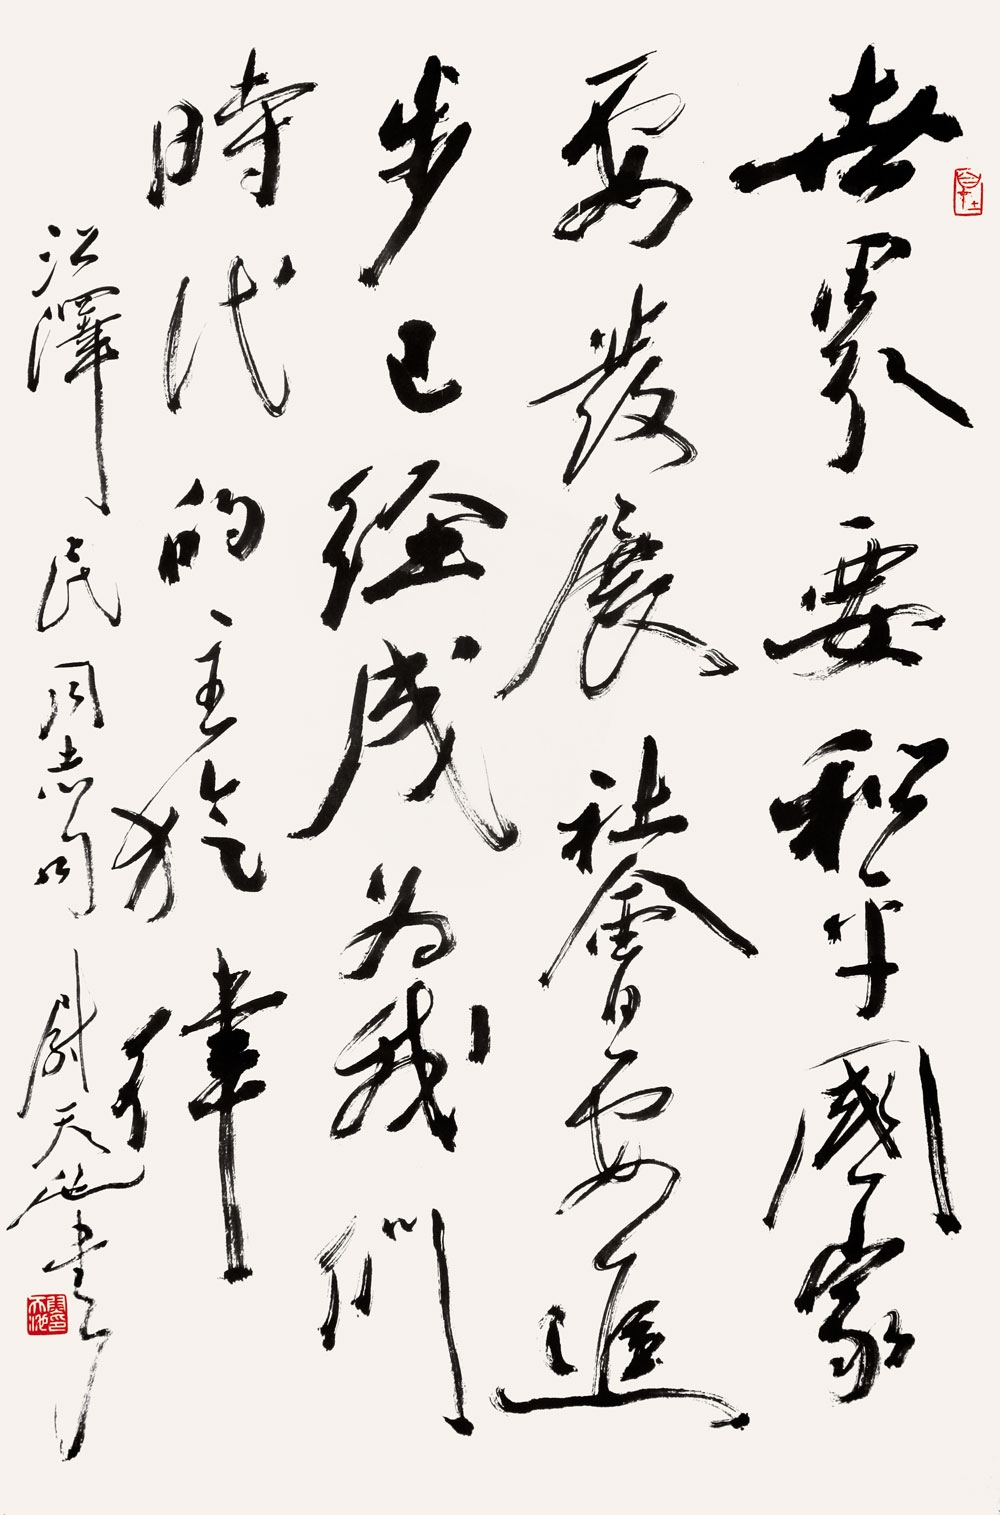 世界要和平國家
要發展社會要進
步已經成为我們
時代的主旋律
江澤民同志句 尉天池書